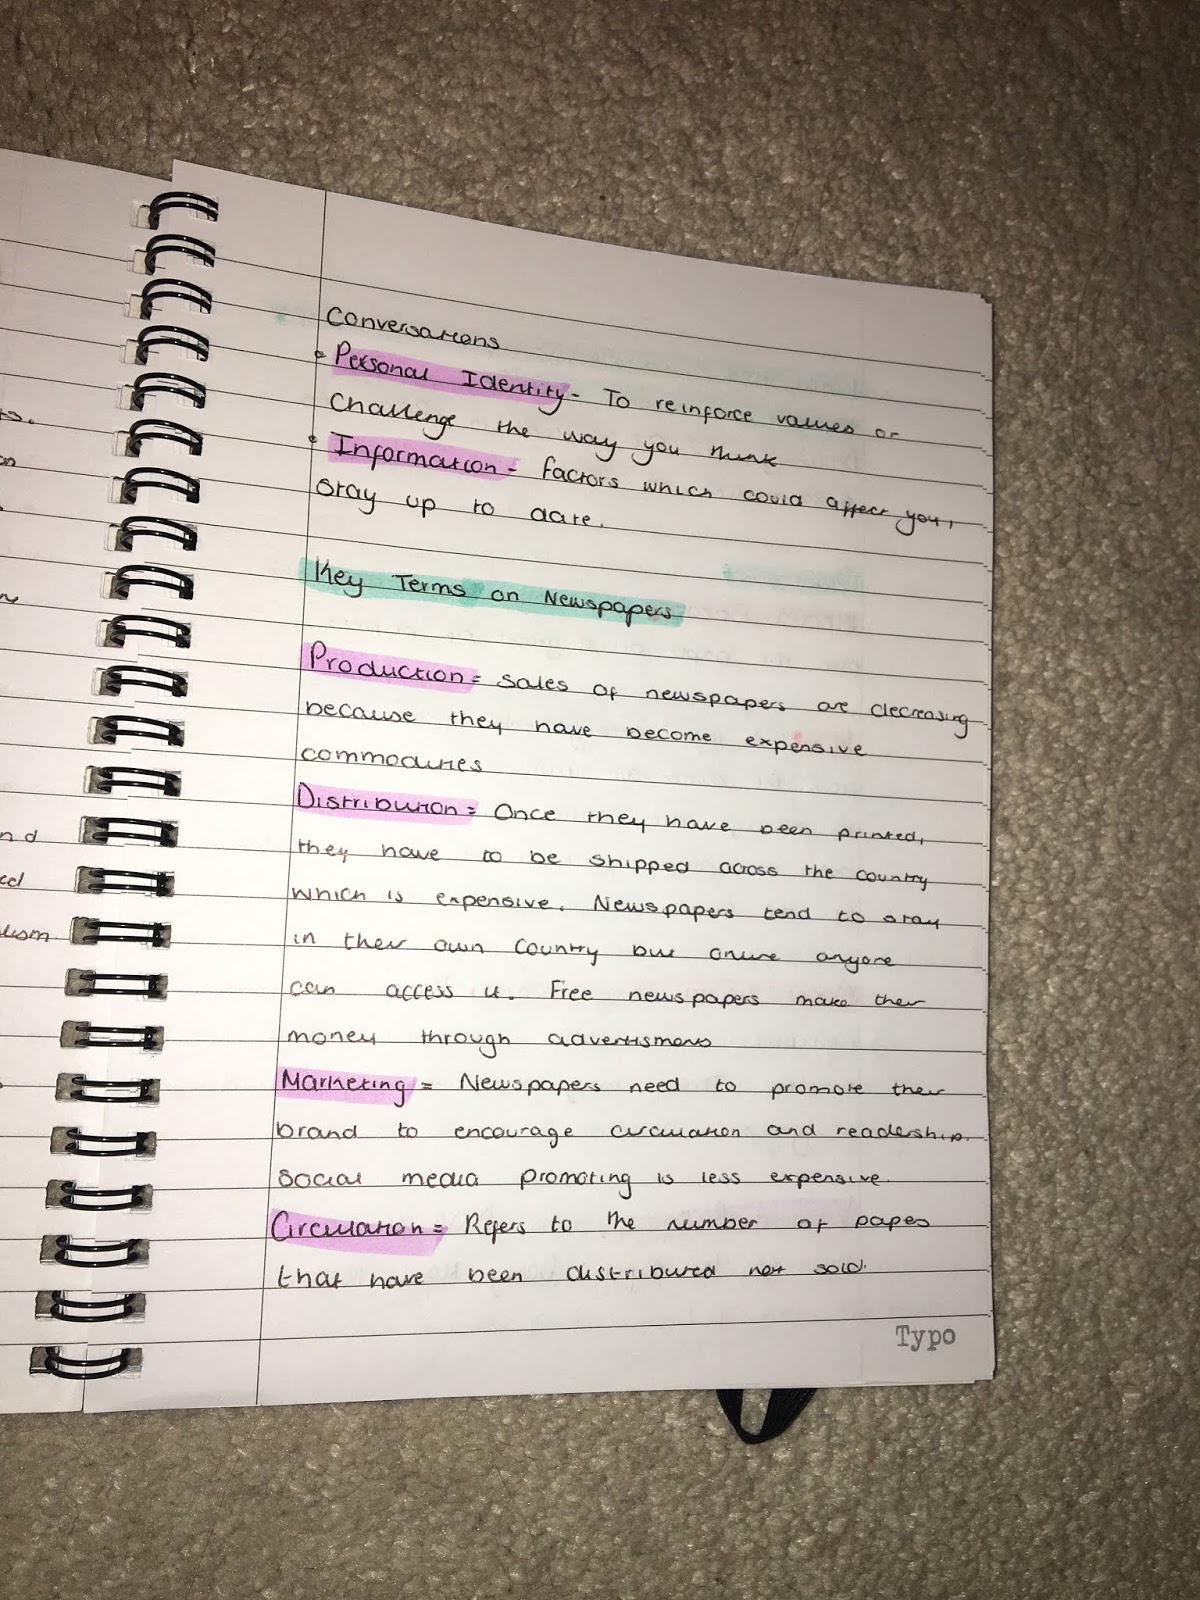 ts.
on
nd
lism
Conversations
• Personal Identity - To reinforce values or
challenge the way you think
• Information - factors which could affect you,
stay up to date.
Key Terms on Newspapers
Production = Sales of newspapers are decreasing
because they have become expensive
commodities
Distribution = Once they have been printed,
they have to be shipped across the country
which is expensive. Newspapers tend to stay
in their own country but online anyone
can access it. Free newspapers make their
money through advertisments
Marketing = Newspapers need to promote their
brand to encourage circulation and readership.
Social media promoting is less expensive.
Circulation = Refers to the number of papes
that have been distributed not sold.
Typo